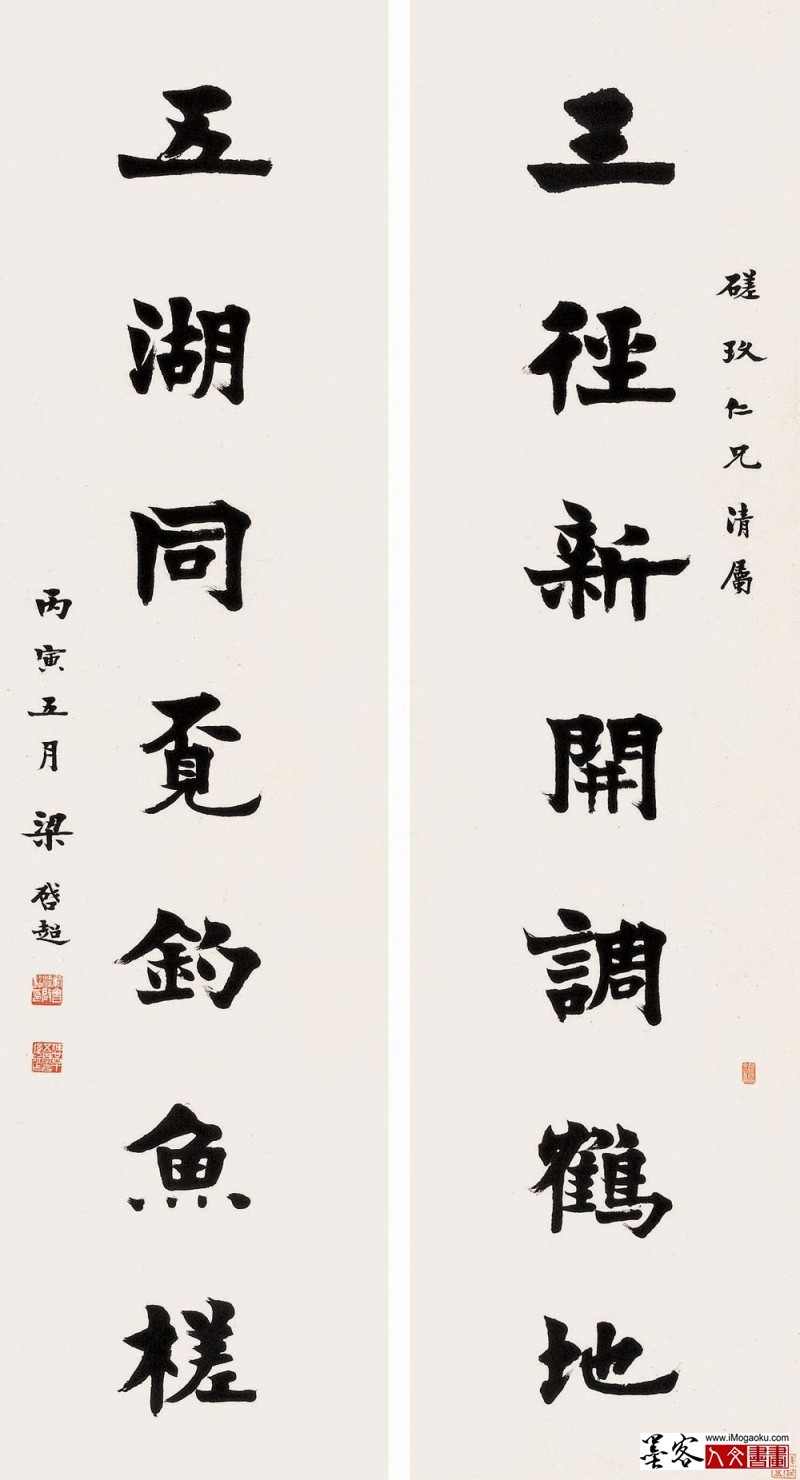 磋玖仁兄清屬
三徑新開調鶴地
五湖同覔釣魚槎
丙寅五月梁啓超
墨客
www.iMogaoku.com
人文書畫